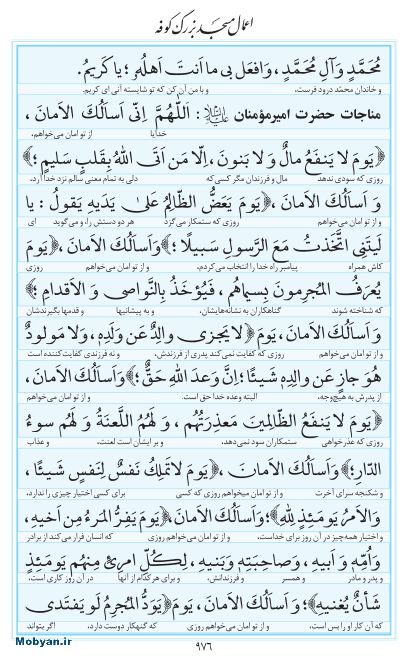 اعمال مسجد بزرگ کوفه
مُحَمَّدٍ وَآلِ مُحَمَّدٍ، وَافعَل بی ما اَنتَ اَهلُهُ؛ یا کَریمُ.
و خاندان محمّد درود فرست، و با من آن کن که تو شایسته آنی ای کریم.
مناجات حضرت امیرمؤمنان علیه‌السلام: اَللّهُمَّ اِنّی اَسأَلُکَ الاَمانَ،
خدایا از تو امان می‌خواهم،
﴿یَومَ لا یَنفَعُ مالٌ وَ لا بَنونَ، اِلّا مَن اَتَی اللهَ بِقَلبٍ سَلیمٍ؛﴾
روزی که سودی ندهد مال و فرزندان مگر کسی‌که دلی به تمام معنی سالم نزد خدا آرد.
وَ اَسأَلُکَ الاَمانَ، ﴿یَومَ یَعَضُّ الظّالِمُ عَلی یَدَیهِ یَقولُ: یا
و از تو امان می‌خواهم روزی که ستمکار می‌گزد هر دو دستش را، و می‌گوید ای
لَیتَنِی اتَّخَذتُ مَعَ الرَّسولِ سَبیلًا؛﴾ وَاَسأَلُکَ الاَمانَ، ﴿یَومَ
کاش همراه پیامبر راه خدا را انتخاب می‌کردم، و از تو امان می‌خواهم روزی
یُعرَفُ المُجرِمونَ بِسیماهُم، فَیُؤخَذُ بِالنَّواصی وَ الاَقدامِ؛﴾
که شناخته شوند گناهکاران به نشانه‌هایشان، و به پیشانیها و قدمها بگیرندشان
وَ اَسأَلُکَ الاَمانَ، یَومَ ﴿لا یَجزی والِدٌ عَن وَلَدِهِ، وَلا مَولودٌ
و از تو امان می‌خواهم، روزی که کفایت نمی‌کند پدری از فرزندش، و نه فرزندی کفایت‌کننده است
هُوَ جازٍ عَن والِدِهِ شَیئًا؛ اِنَّ وَعدَ اللهِ حَقٌّ؛﴾ وَاَسأَلُکَ الاَمانَ،
از پدرش به هیچ‌وجه، البته وعده خدا حق است. و از تو امان می‌خواهم
﴿یَومَ لا یَنفَعُ الظّالِمینَ مَعذِرَتُهُم، وَ لَهُمُ اللَّعنَةُ وَ لَهُم سوءُ
روزی که عذرخواهی ستمکاران سود نمی‌دهد. و بر ایشان است لعنت، و عذاب
الدّارِ؛﴾ وَاَسأَلُکَ الاَمانَ، ﴿یَومَ لاتَملِکُ نَفسٌ لِنَفسٍ شَیئًا،
و شکنجه سرای آخرت و از تو امان میخواهم روزی که کسی برای کسی اختیار چیزی را ندارد.
وَالاَمرُ یَومَئِذٍ لِلّهِ؛﴾ وَاَسأَلُکَ الاَمانَ، ﴿یَومَ یَفِرُّ المَرءُ مِن اَخیهِ،
و اختیار همه‌چیز در آن روز برای خداست، و از تو امان می‌خواهم روزی که انسان فرار می‌کند از برادر
وَاُمِّهِ وَ اَبیهِ، وَصاحِبَتِهِ وَبَنیهِ، لِکُلِّ امرِئٍ مِنهُم یَومَئِذٍ
و پدر و مادر و همسر و فرزندانش، و برای هرکدام از آنها در آن روز کاری است،
شَأنٌ یُغنیهِ؛﴾ وَ اَسأَلُکَ الاَمانَ، یَومَ ﴿یَوَدُّ المُجرِمُ لَو یَفتَدی
که آن کار او را بس است، و از تو امان می‌خواهم روزی که گنهکار دوست دارد، اگر بتواند
۹۷۶
Mobyan.ir